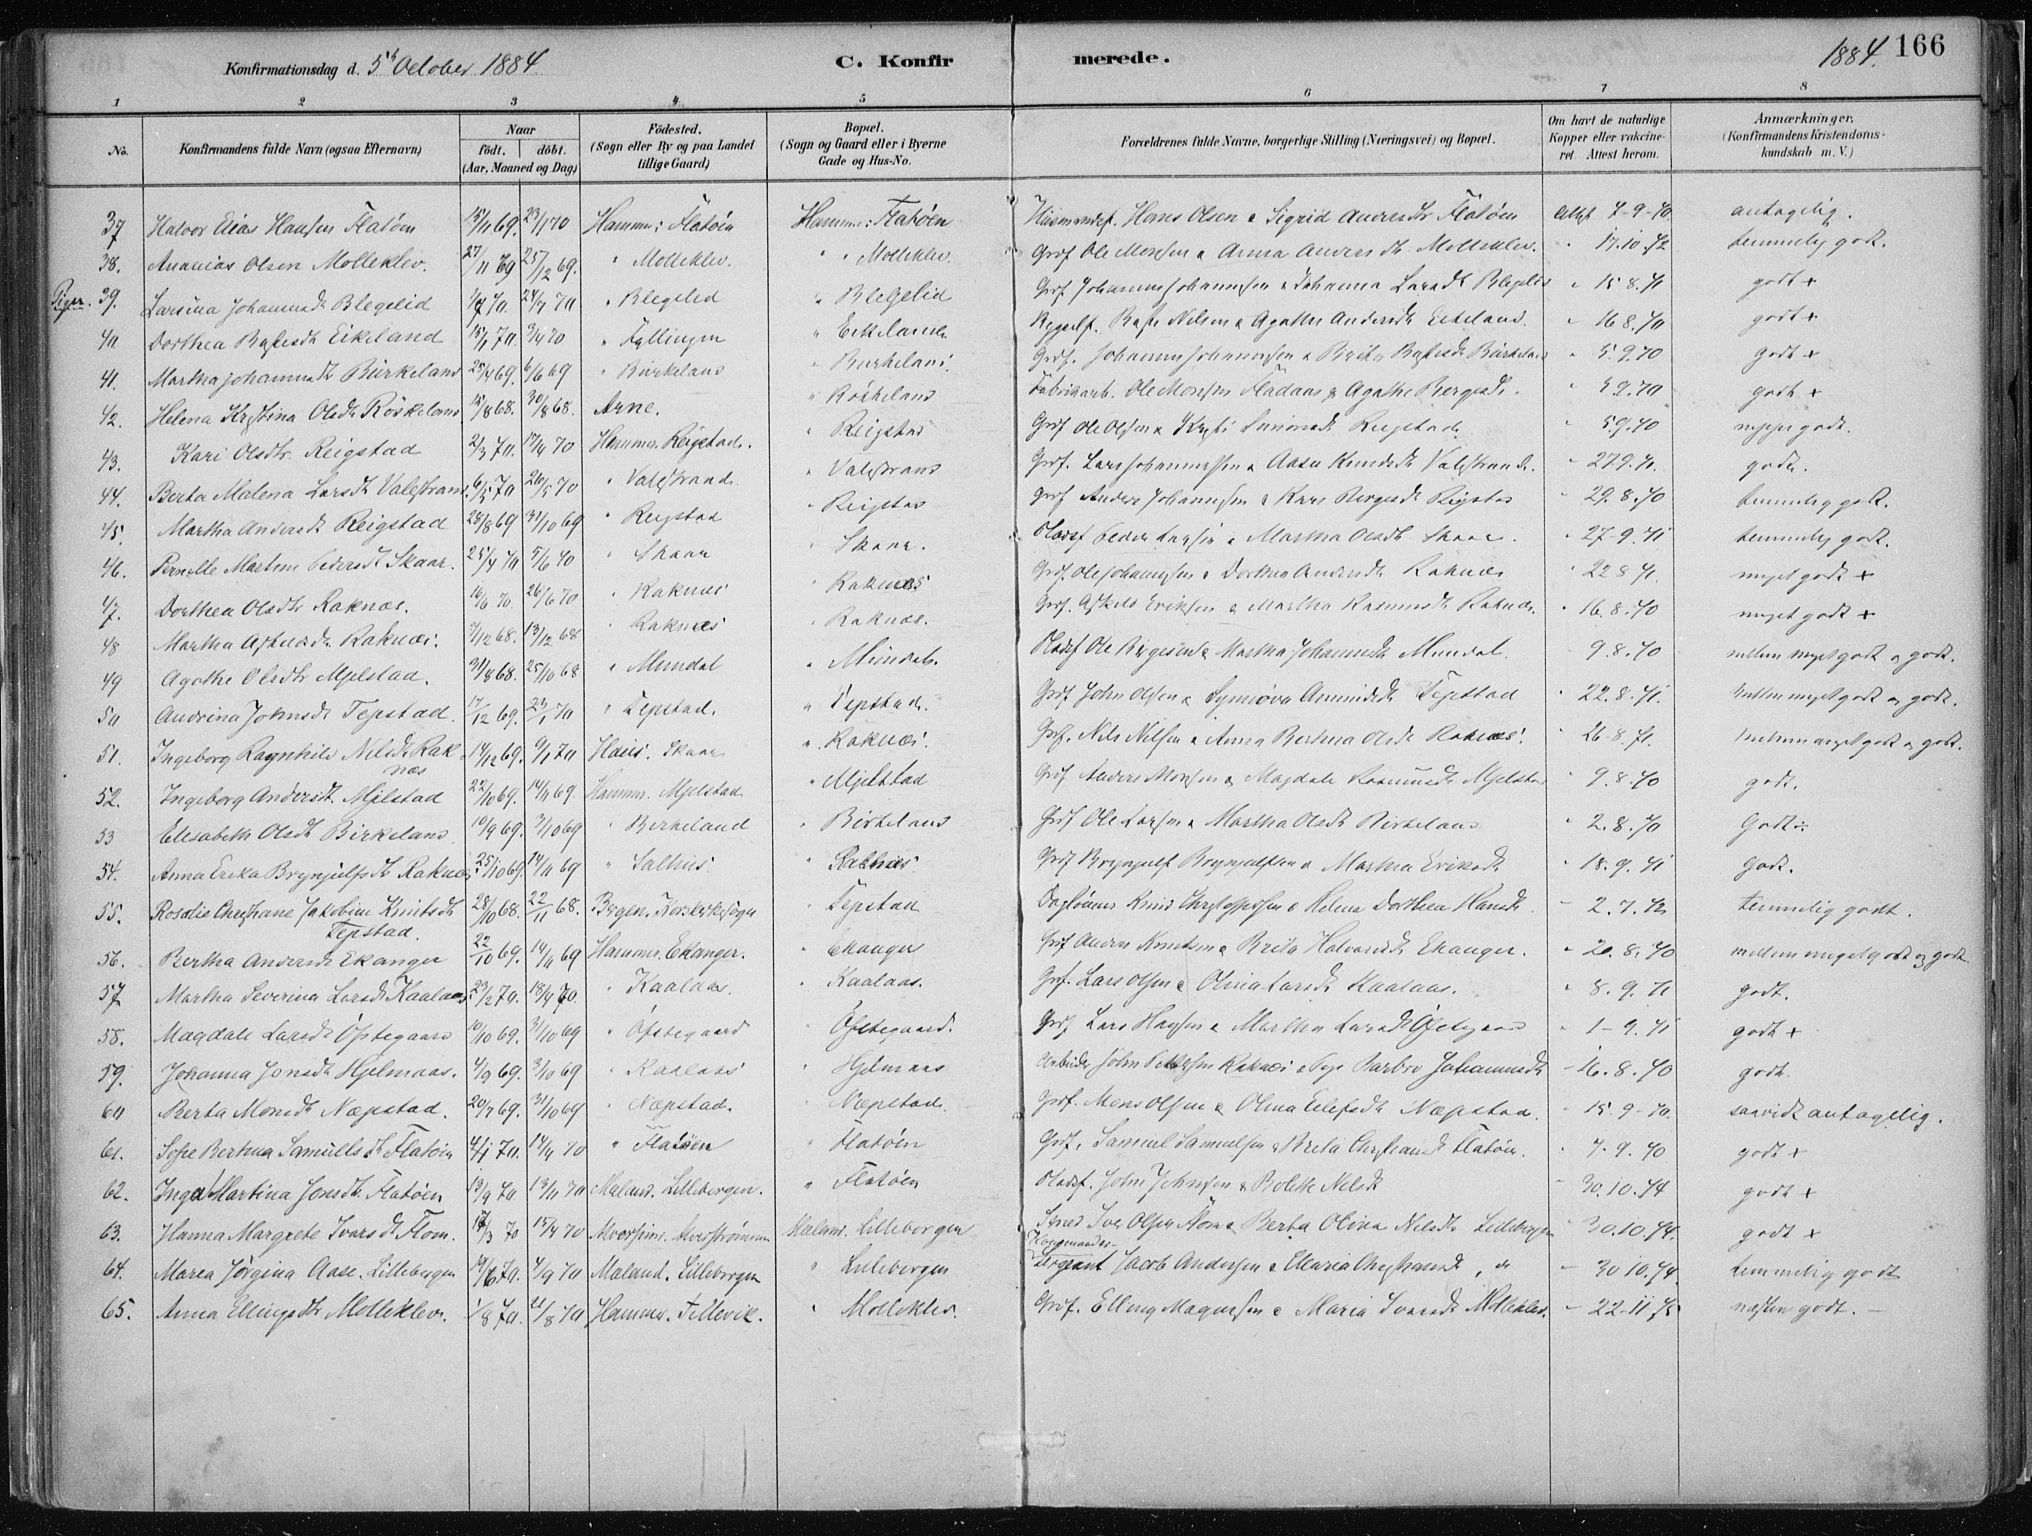 Konfirmationsdag d. 5t October 1884. C. Konfirmerede. 1884. 166
1 2 3 4 5 6 7 8
No. Konfirmandens fulde Navn (ogsaa Efternavn) Naar Födt. döbt. (Aar, Maaned og Dag) Födested. (Sogn eller By og paa Landet tillige Gaard) Bopæl. (Sogn og Gaard eller i Byerne Gade og Hus-No. Forældrenes fulde Navne, borgerlige Stilling (Næringsvei) og Bopæl. Om havt de naturlige Kopper eller vakcineret. Attest herom. Anmærkninger. (Konfirmandens Kristendomskundskab m. V.)
37 Halvor Elias Hansen Flatöen 15/11 69. 23/1 70 Hammer: Flatöen Hammer: Flatöen Husmandsf. Hans Olsen & Sigrid Andersdtr Flatöen Attest 7-9-70 antagelig.
38. Ananias Olsen Molleklev. 27/11 69 25/12 69. " Molleklev. " Molleklev. Grdf Ole Monsen & Anna Andersdt Molleklev. " 17.10.72 temmelig godt.
Piger. 39. Larsina Johannesdt Blegelid 24/4 70 " Blegelid " Blegelid Grdf. Johannes Johannesen & Johanna Larsdt Blegelid " 15.8.71 godt +
40 Dorthea Eikeland 3/4 70 " Fyllingen " Eikeland Nilsen & Agathe Andersdt Eikeland. " 16.8.70 godt +
41. Martha Johannesdt Birkeland 25/4 69. 6/6 69 " Birkeland " Birkeland Grdf. Johannes Johannesen & Brita Birkeland " 5.9.70 godt +
42. Helena Kristina Olsdt Röskeland 15/8 68. 30/8 68. Arne. " Röskeland Fabrikarb. Ole Monsen Fladaas & Agathe Bergesdt. " 5.9.70 godt +
43. Kari Olsdtr. Reigstad 2/3 70. 17/4 70 Hammer. Reigstad. " Reigstad Grdf Ole Olsen & Reigstad. " 5.9.70 meget godt.
44. Berta Malena Larsdt Valestrand 6/5 70 26/5 70 " Valestrand. " Valestrand Grdf. Lars Johannessen & Aasa Knudsdt Valestrand. " 27.9.71. godt.
45. Martha Andersdt Reigstad 28/8 69 31/10 69 " Reigstad " Reigstad Grdf Anders Johannesen & Kari Bergesdt Reigstad " 29.8.70 temmelig godt.
46. Pernille Martine Pedersdt Skaar. 25/4 70 5/6 70 " Skaar " Skaar. Pladsf Peder Larsen & Martha Olsdt Skaar. " 27-9.71 temmelig godt.
47. Dorthea Olsdtr Raknæs. 14/6 70. 26/6 70 " Raknæs " Raknæs Grdf. Ole Johannesen & Dorthea Andersdt Raknæs " 22 8 71. meget godt +
48 Martha Askilsdt Raknæs. 3/12 68. 13/12 68 " Raknæs " Raknæs. Grdf. Askild Eriksen & Martha Rasmusdt Raknæs. " 16.8.70 meget godt +
49 Agathe Olsdtr Mjelstad. 31/8 68. 25/10 68 " Mundal " Mundal. Pladsf Ole & Martha Johannesdt Mundal. 9.8.70 mellem meget godt og godt.
50 Andrina Johnsdt Tepstad. 17/12 69. 23/1 70 " Tepstad. " Tepstad. Grdf John Olsen & Synnöva Tepstad " 22.8.71. mellem meget godt og godt.
51. Ingeborg Ragnhild Nilsdt Raknæs 14/12 69. 9/1 70 Haus. Skaar " Raknæs. Grdf. Nils Nilsen & Anna Bertina Olsdt Raknæs. " 26.8.71. mellem meget godt og godt.
52. Ingeborg Andersdt. Mjelstad 22/10 69. 14/11 69 Hammer. Mjelstad " Mjelstad Grdf Anders Monsen & Magdale Rasmusdt Mjelstad " 9.8.70 godt.
53 Elisabeth Olsdt Birkeland 10/9 69. 3/10 69 " Birkeland " Birkeland Grdf Ole Larsen & Martha Olsdt Birkeland " 2.8.70 Godt
54. Anna Erika Brynjulfsdt Raknæs. 25/10 69. 14/11 69 " Salhus " Raknæs. Grdf Brynjulf Brynjulfsen & Martha Eriksdt " 18.9.71 Godt.
55. Rosalie Christiane Jakobine Knutsdt Tepstad. 28/10 68. 22/11 68. Bergen, Korskirkesogn " Tepstad Daglönner Knud Christoffersen & Helena Dorthea Hansdt " 2.7.72 temmelig godt.
56. Bertha Andersdt Ekanger 22/10 69. 14/11 69 Hammer. Ekanger. " Ekanger Grdf Anders Knutsen & Brita Halvorsdt Ekanger. " 20.8.70 mellem meget godt og godt.
57 Martha Severina Larsdt Kaalaas. 23/2 70. 18/4 70. " Kaalaas. " Kaalaas. Grdf. Lars Olsen & Olina Larsdt Kaalaas. " 8.9.71 godt.
58. Magdale Larsdt Öfstegaard 10/10 69. 31/10 69 " Öfstegaard " Öfstegaard. Grdf Lars Hansen & Martha Larsdt Öfstegaard " 1-9.71 godt +
59. Johanna Jonsdt Hjelmaas. 4/9 69. 3/10 69 " Kaalaas " Hjelmaas Arbeider John Raknæs & Pige Barbro Johannesdt - 16.8.70 godt.
60 Berta Monsdt Næpstad. 20/7 69. 31/10 69 " Næpstad. " Næpstad. Grdf. Mons Olsen & Olina Eilefsdt Næpstad. - 15.9-70. saavidt antagelig.
61. Sofie Bertina Samuelsdt Flatöen 4/1 70. 14/4 70 " Flatöen " Flatöen Grdf. Samuel Samuelsen & Brita Christiansdt Flatöen. " 7-9.70 godt +
62. Inga Martina Jonsdt. Flatöen 13/9 70 13/11 70 Maland. Lilleborgen. " Flatöen Pladsf. John Johnsen & Bolette Nilsdt - 30.10.74 godt +
63. Hanna Margrete Ivarsdt Flom. 17/3 70 15/4 70 Maland. Lilleborgen Iver Olsen Flom & Berta Olina Nilsdt Lilleborgen - 30.10.74. godt +
64. Marea Jörgina Aase. Lilleborgen 19/6 70. 4/9 70 Maland. Lilleborgen " Lilleborgen Sergeant Jacob Andersen & Maria Christiansdt " - 30 10.74. temmelig godt
65. Anna Ellingsdt Molleklev. 1/8 70. 21/8 70 Hammer. " Molleklev. Grdf. Elling Magnesen & Maria Ivarsdt Molleklev. - 22-11.75 næsten godt. -